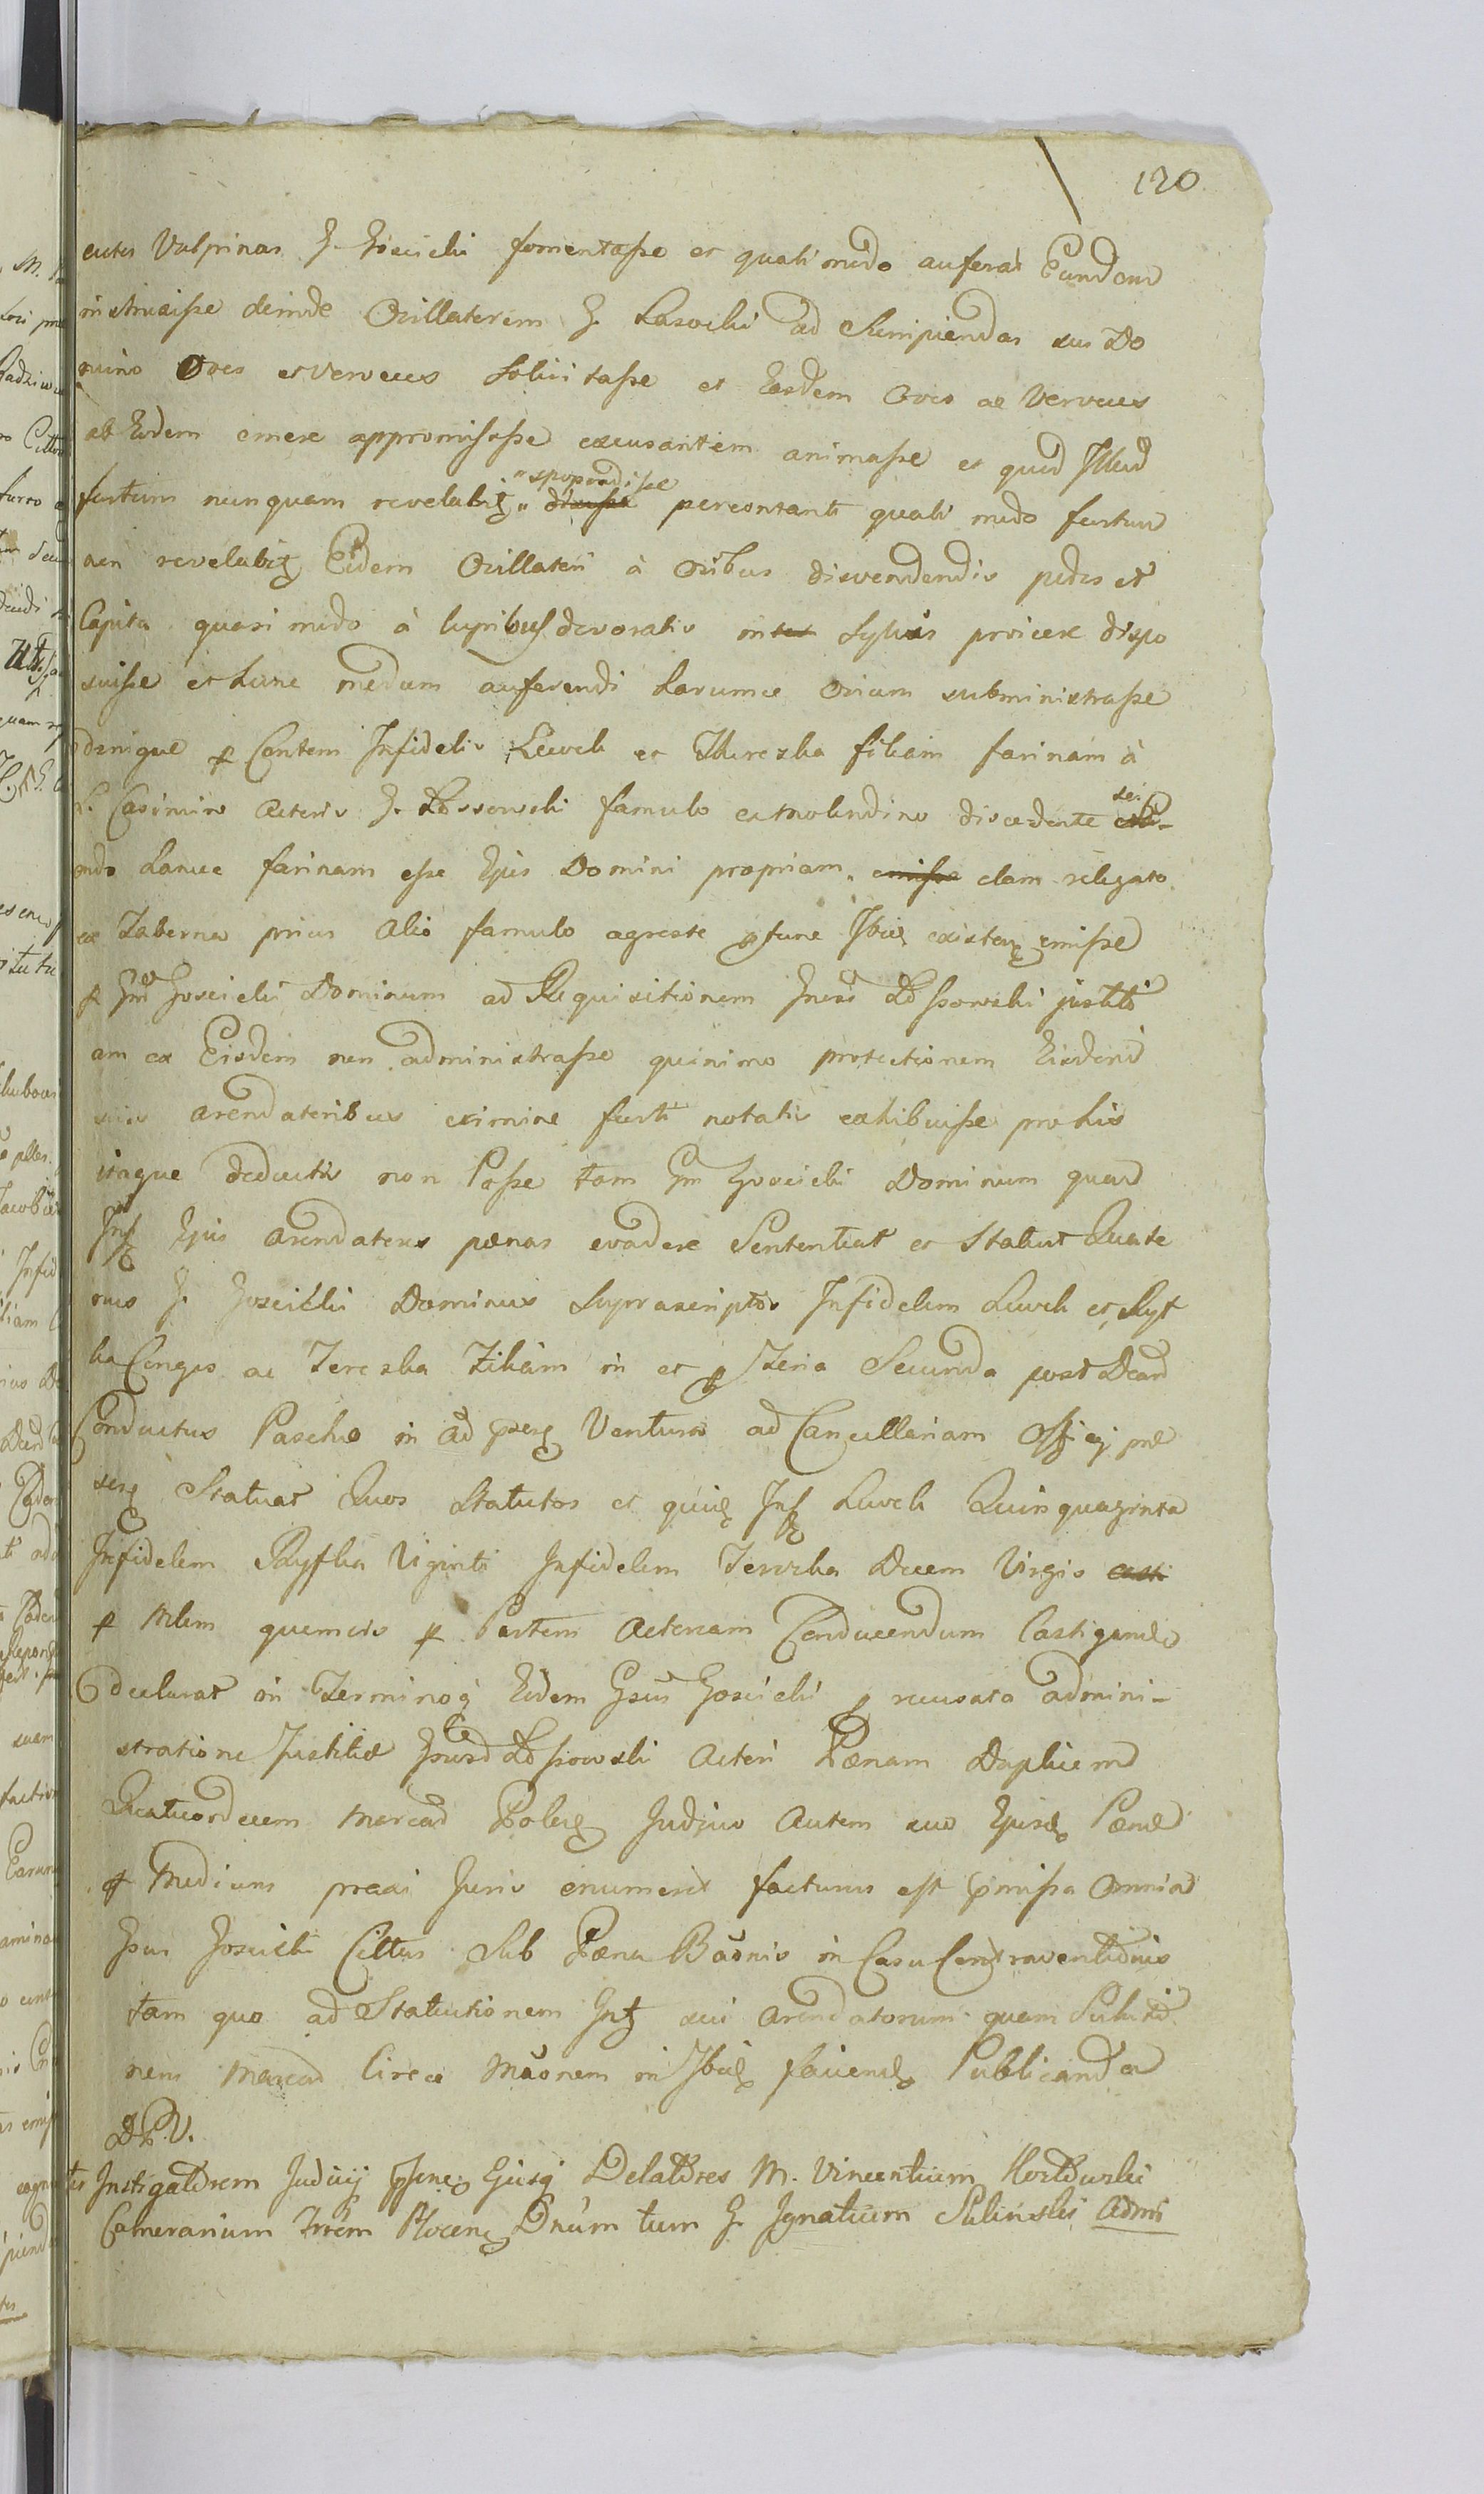 120
cutes Vulpinas G. Gościcki fomentasse et quali modo auferat Eundem
instruxisse deinde Ovillatorem G. Lasocki ad Surripiendas suo Do
mino Oves et Verveces Solicitasse et Easdem Oves ac Verveces
ab Eodem emere appromisisse excusantem animasse et quod Illud
furtum nunquam revelabit spopondisse percontanti quali modo furtum
non revelabit Eidem Ovillatori à Ovibus divendendis pedes et
Capita quasi modo à lupibus devoratis in Sylvis proicere dispo
suisse et hunc modum auferendi Earumce Ovium subministrasse
denique Infidelis Lewek et Thereska filiam farinam à
L. Casimiro Actoris G. Lossowski famulo ex molendino discedente sci
endo hancce farinam esse Ejus Domini propriam clam relegato
ex Taberna prius alio famulo agreste tunc Ibid existen emisse
Gościcki Dominum ad Requisitionem Lossowski justiti
am ex Eisdem non administrasse quinimo protectionem Eisdem
suis arendatoribus crimine furti notatis exhibuisse pro his
itaque deductis non Posse tam Gościcki Dominum quam
Inf Ejus arendatores pœnas evadere Sententiat et Statuit Quate
nus G. Gościcki Dominus Suprascriptos Infidelem Lewek et Ryf
ka Conges ac Tereska Filiam in et p Feria Secunda post Dcam
Conductus Pasche in ad præs Venturo ad Cancellariam Officij præ
sen Statuat Quos Statutos et quid Inf Lewek Quinquaginta
Infidelem Ryfka Viginti Infidelem Tereska Decem Virgis
p Mlem quemvis p Partem Actoream Conducendum Castigando
decernit in Termino q Eidem Gsus Gościcki p recusata admini-
stratione Justitiæ Lossowski Actori Pœnam Duplicem
Quatuordecem Marcar Polic Judicio Autem suo Ejusd Pœnæ
p Medium præai Juris enumeret facturus est præmissa Omnia
Gsus Gościcki Cittus Sub Pœna Bannis in Casu Contraventionis
tam quo ad Statutionem Inf sui arendatorum quam Soluti
nem Marcar Circa in Ibid faciend Publicanda
D.P.V.
Instigatorem Judicij Ejusq Delatores M. Vincentium
Camerarium Trrem Plocen Dnum tum G. Ignatium Suliński Admi